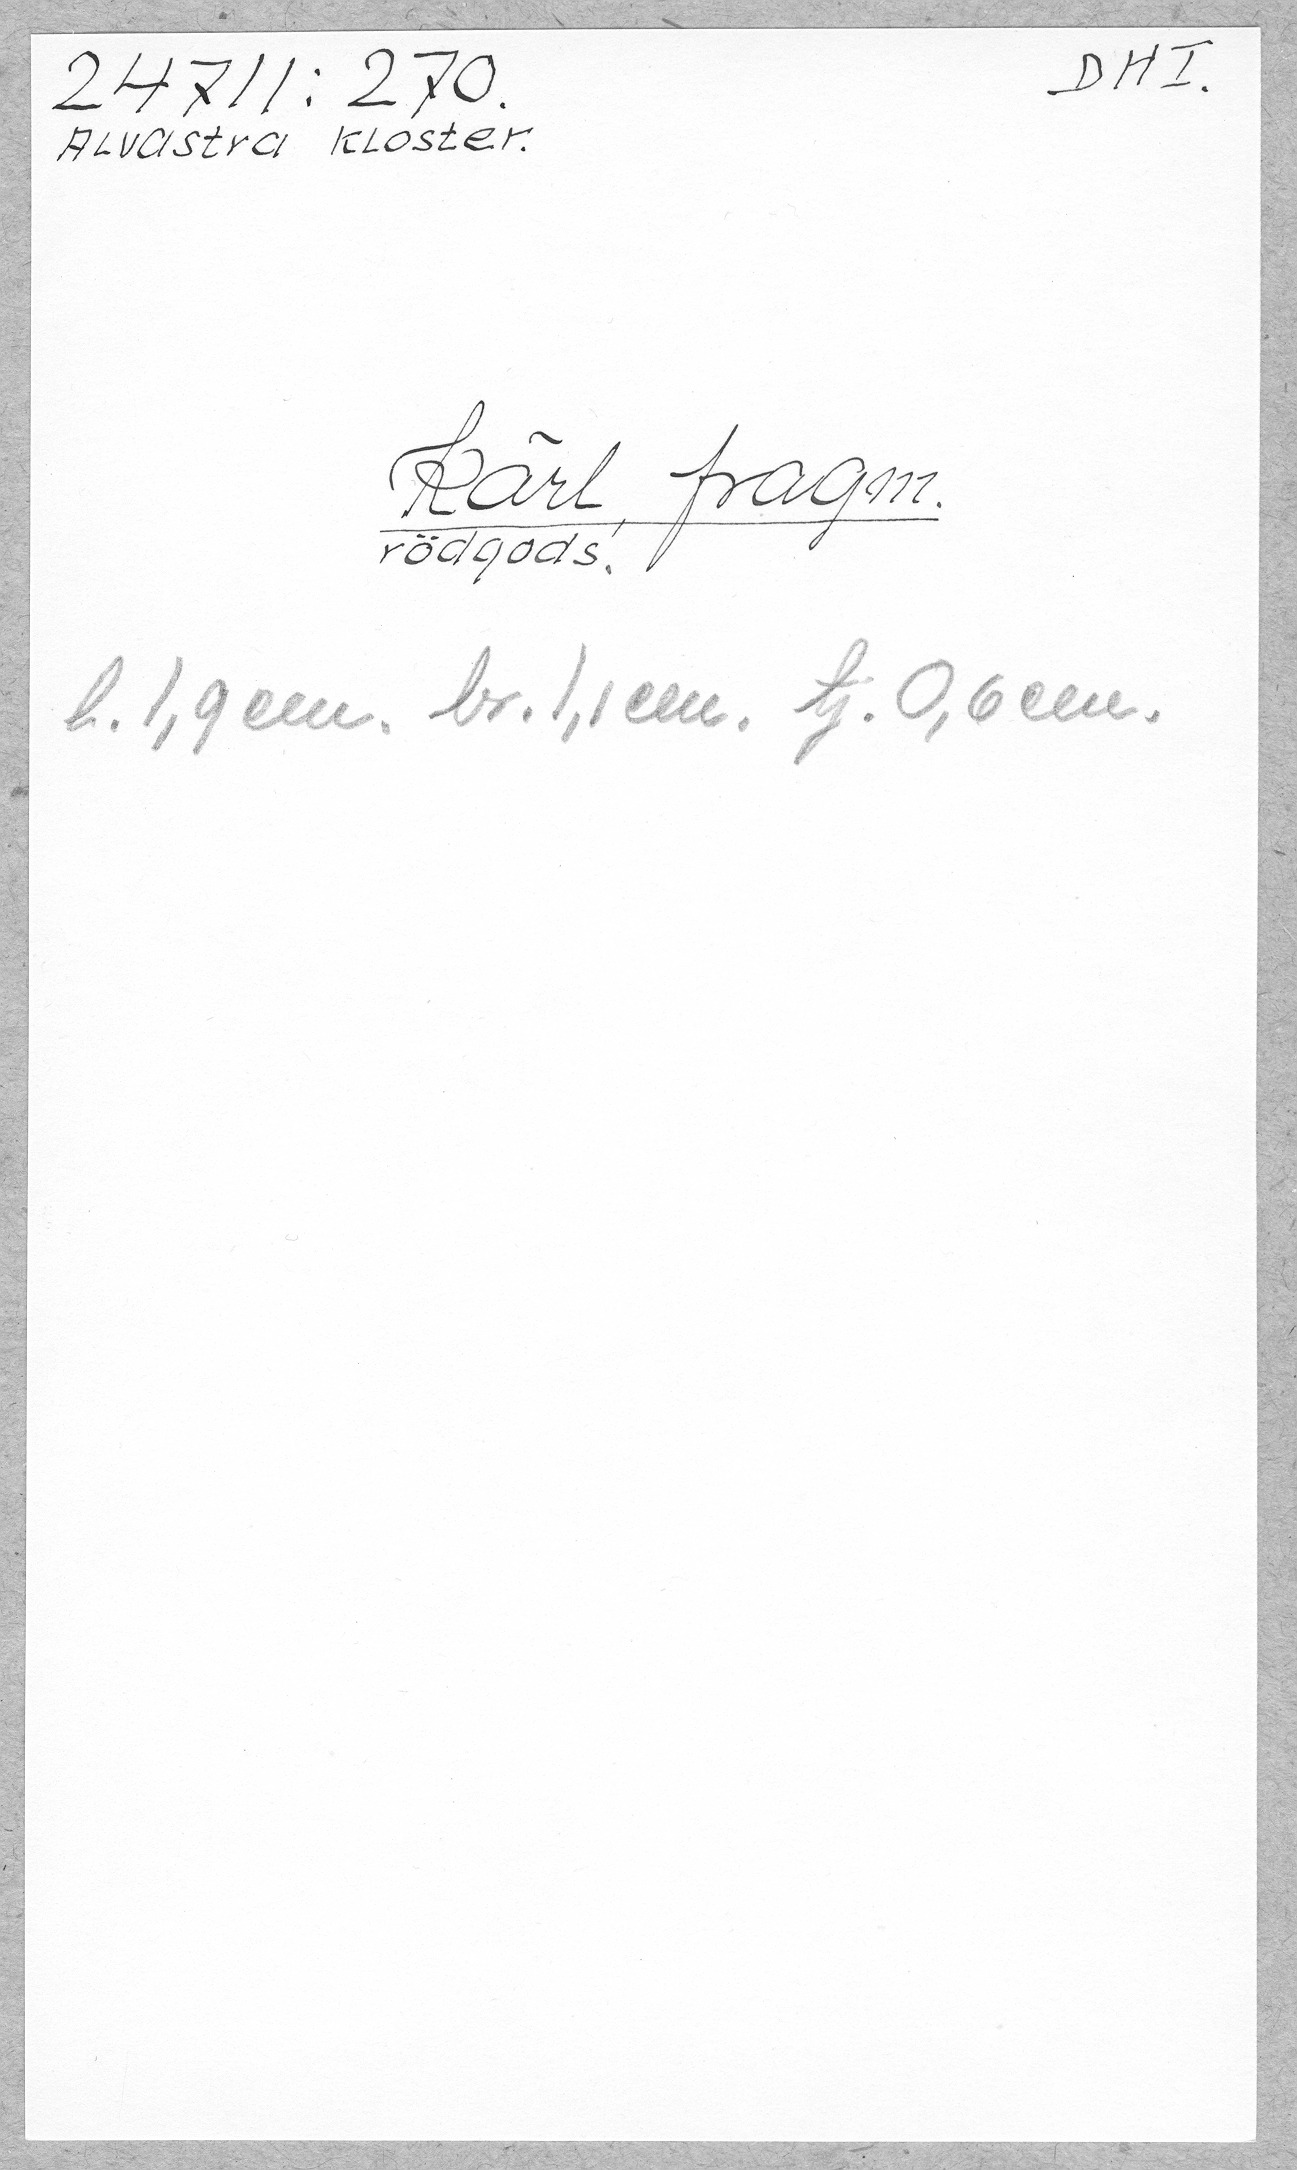 24711:270.
DHI.
Alvastra kloster.
Kärl, fragm.
rödgods.
l. 1,9 cm. br. 1,1 cm. tj. 0,6 cm.